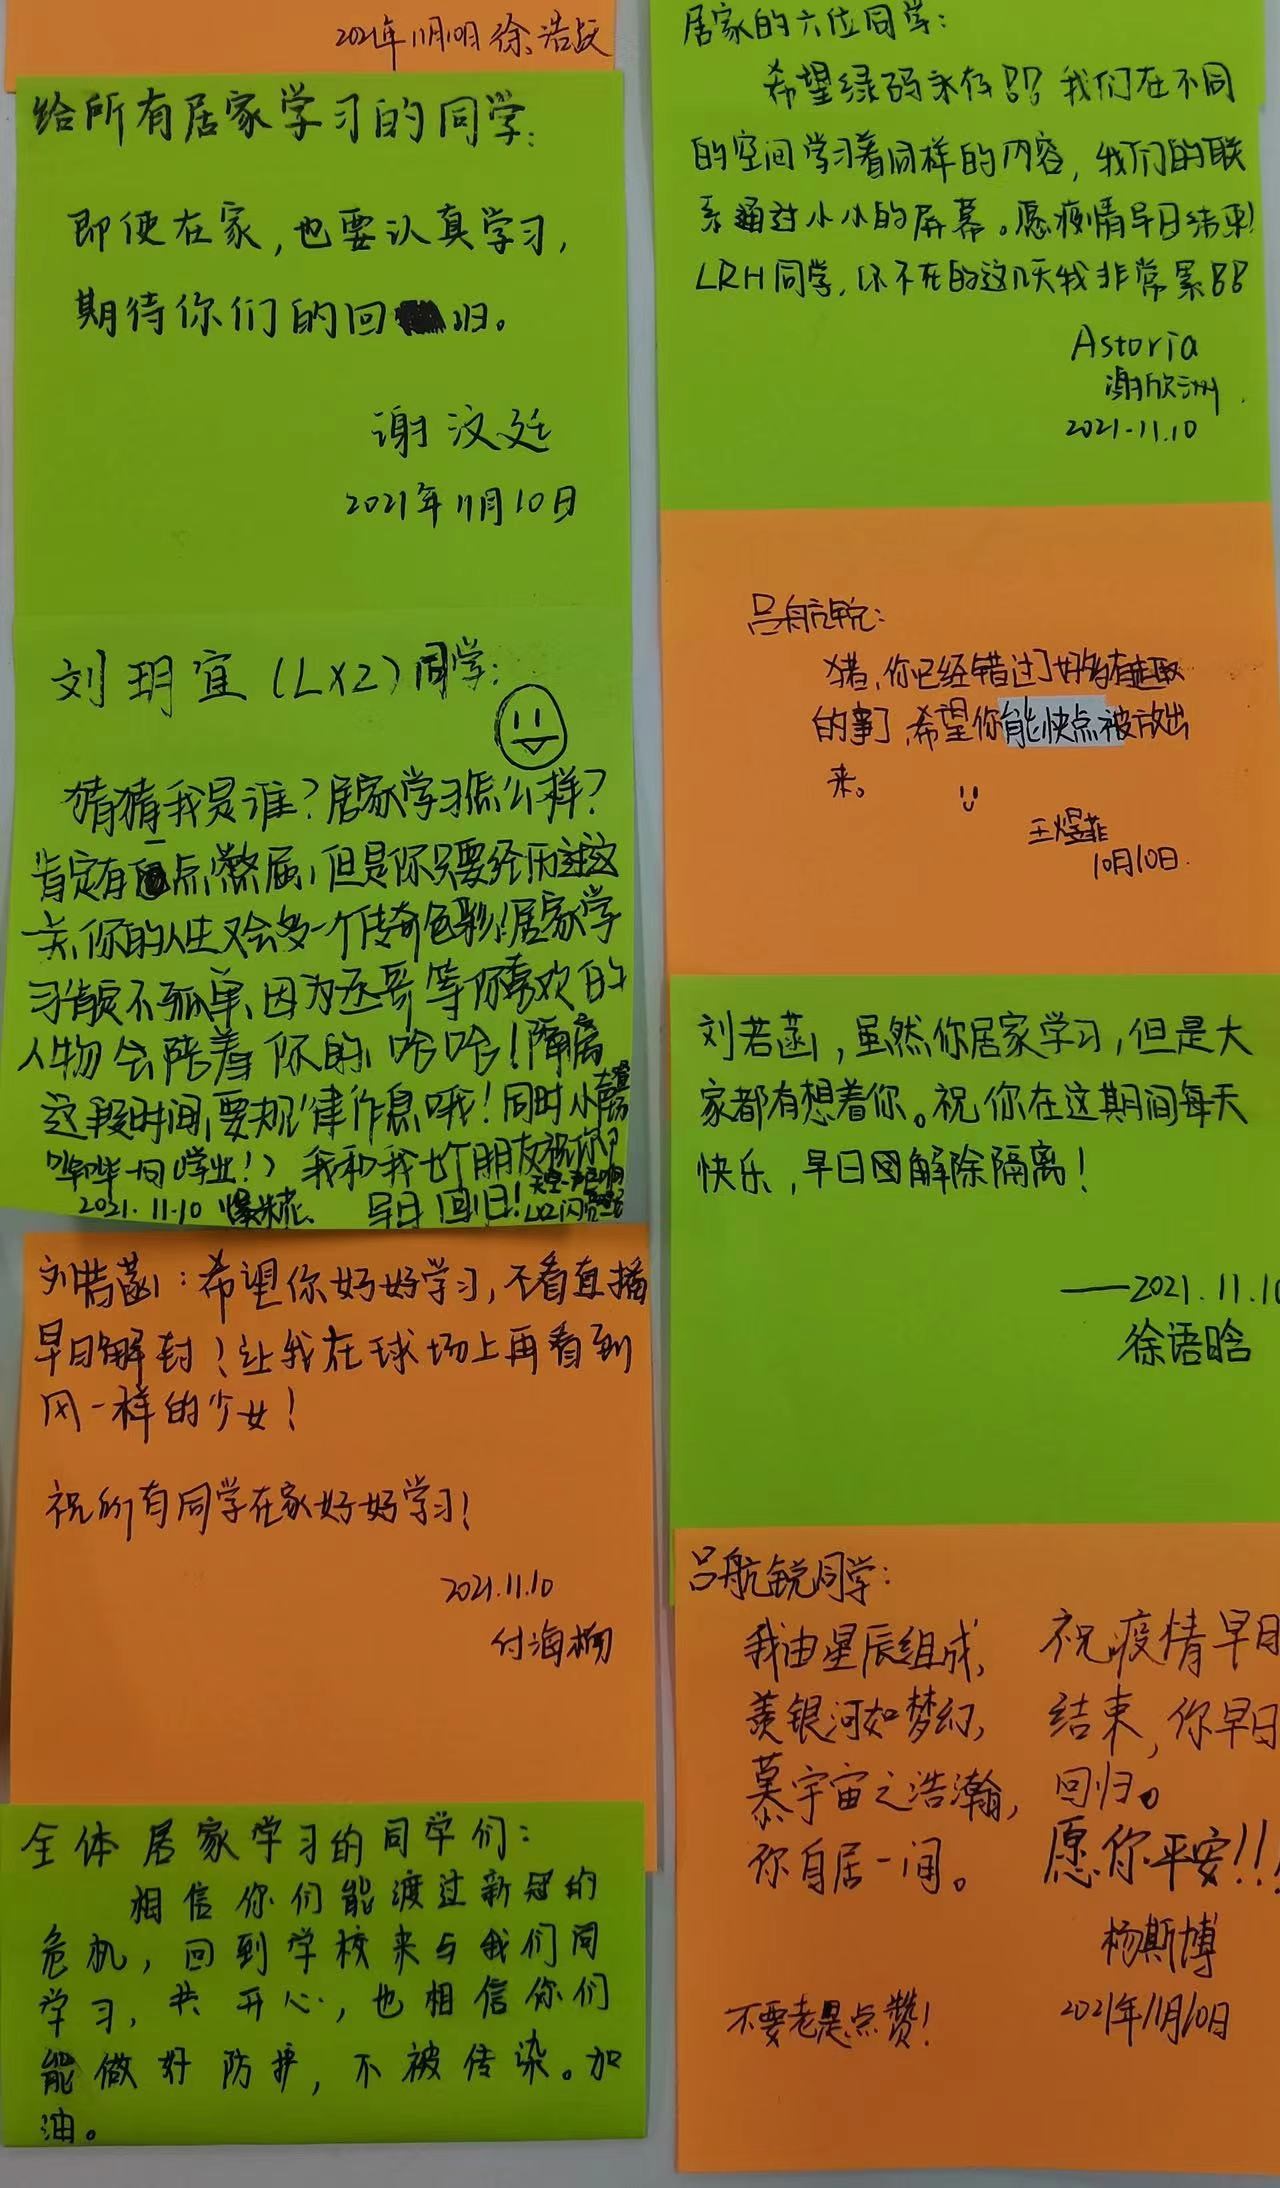 2021年11月10日 徐浩
给所有居家学习的同学:
即使在家,也要认真学习,
期待你们的回归。
谢汶廷
2021年11月10日
刘玥宜(LXZ)同学:
猜猜我是谁?居家学习怎么样?
肯定有点憋屈,但是你只要经历过这
关,你的人生又会多一个传奇色彩!居家学
习肯定不孤单,因为丞哥等你喜欢的
人物会陪着你的,哈哈!隔离
这段时间,要规律作息哦!同时
(学业!) 我和我七个朋友祝你
2021.11.10 爆米花 早日回归!
刘若菡:希望你好好学习,不看直播
早日解封!让我在球场上再看到
风一样的少女!
祝所有同学在家好好学习!
2021.11.10
付海柳
全体居家学习的同学们:
相信你们能渡过新冠的
危机,回到学校来与我们同
学习,共开心,也相信你们
能做好防护,不被传染。加
油。
居家的六位同学:
希望绿码永存!!我们在不同
的空间学习着同样的内容,我们的联
系通过小小的屏幕。愿疫情早日结束!
LRH同学,你不在的这几天我非常累!!
Astoria
谢欣洲
2021-11.10
吕航锐:
猪,你已经错过了好多有趣
的事了,希望你能快点被放出
来。
王煜菲
10月10日.
刘若菡,虽然你居家学习,但是大
家都有想着你。祝你在这期间每天
快乐,早日解除隔离!
——2021.11.10
徐语晗
吕航锐同学:
我由星辰组成,
羡银河如梦幻,
慕宇宙之浩瀚,
你自居一间。
祝疫情早日
结束,你早日
回归。
愿你平安!!!
杨斯博
2021年11月10日
不要老是点赞!